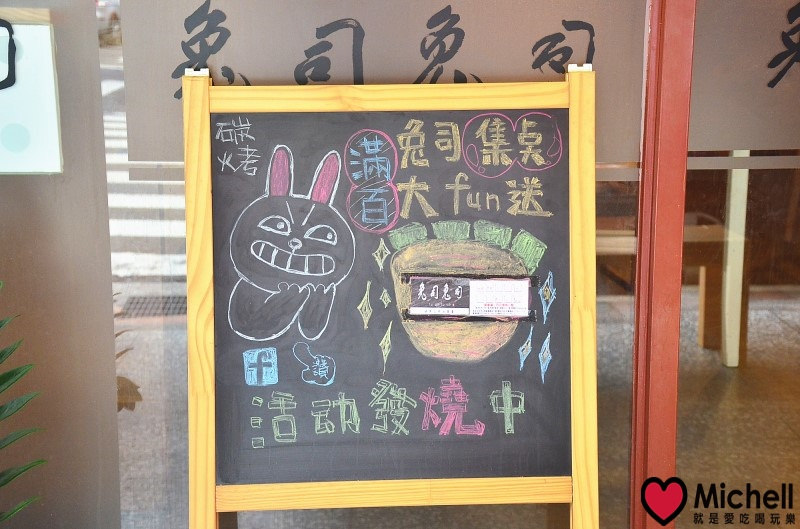 兔司兔司
碳烤
滿百
兔司集点
大fun送
兔司兔司
f 讚
活动發燒中
Michell
就是愛吃喝玩樂